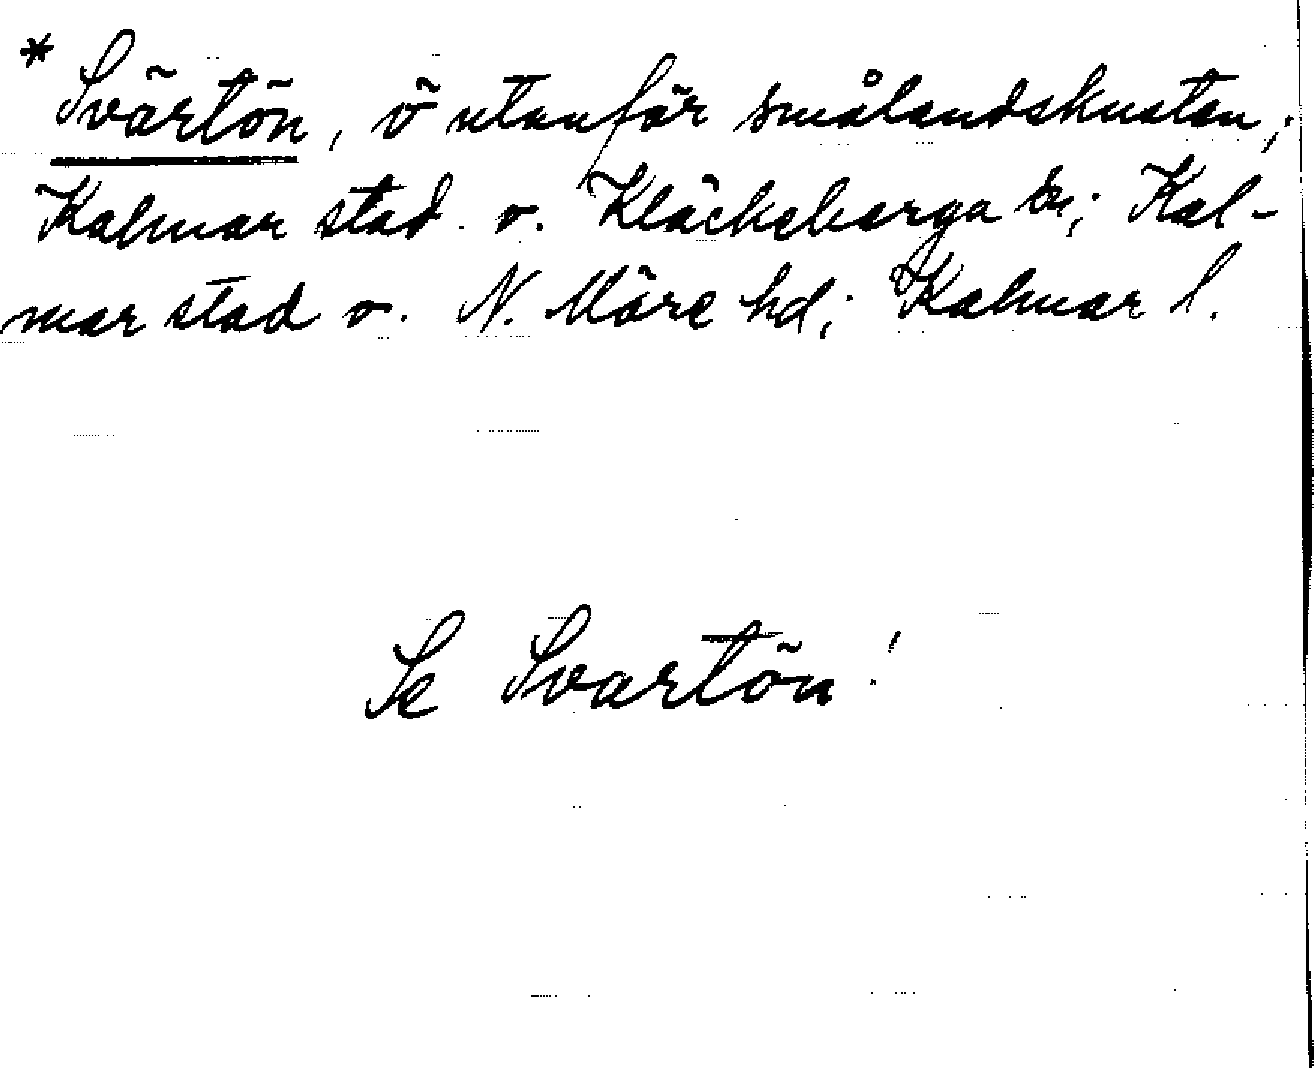 * Svärtön, ö utanför smålandskusten;
Kalmar stad o. Kläckeberga sn; Kal-
mar stad o. N. Möre hd; Kalmar l.
Se Svartön!